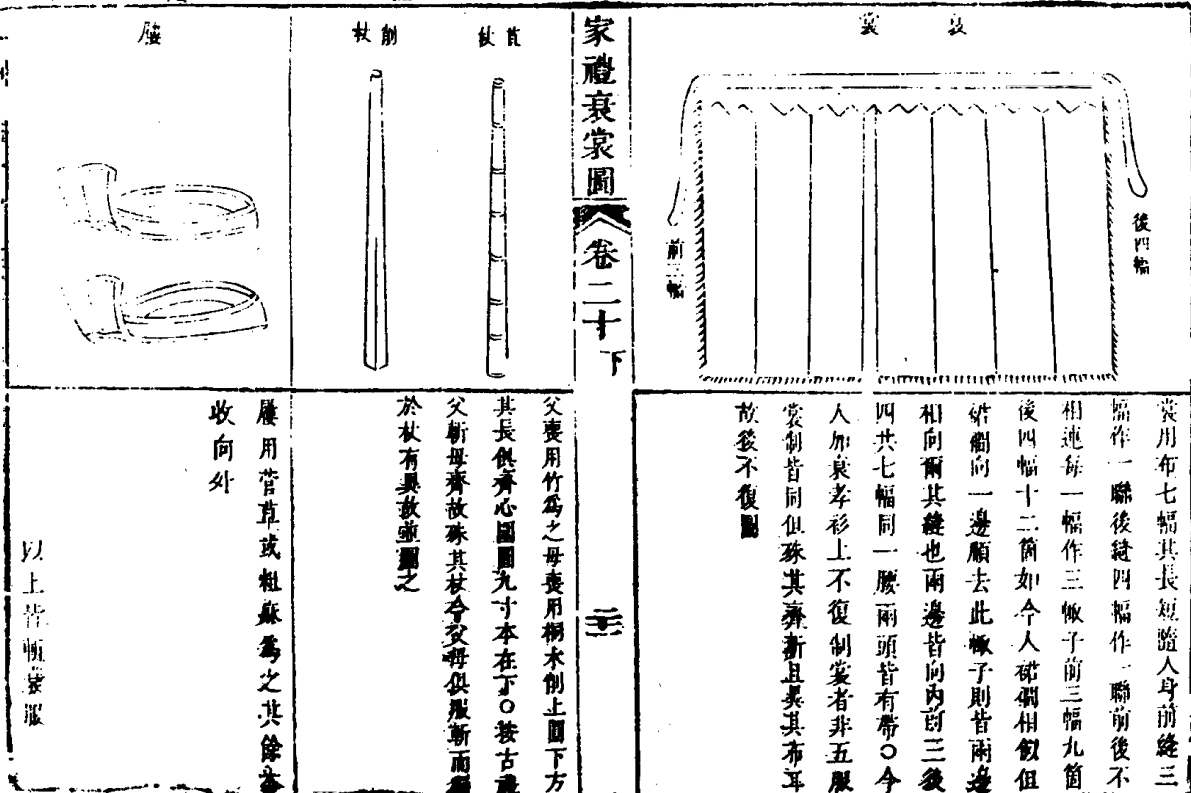 衰裳
後四幅
前三幅
裳用布七幅其長短隨人身前縫三
幅作一聯後縫四幅作一聯前後不
相連每一幅作三㡇子前三幅九箇
後四幅十二箇如今人裙襉相似但
裙襉向一邊順去此㡇子則皆兩邊
相向爾其縫也兩邊皆向內前三後
四共七幅同一腰兩頭皆有帶○今
人加衰孝衫上不復制裳者非五服
裳制皆同但殊其齊斬且異其布耳
故後不復圖
家禮衰裳圖
卷二十下
三三
苴杖
削杖
父喪用竹爲之母喪用桐木削上圓下方
其長俱齊心圍圓九寸本在下○按古禮
父斬母齊故殊其杖今父母俱服斬而獨
於杖有異故並圖之
屨
屨用菅草或粗麻爲之其餘
收向外
以上皆斬衰服